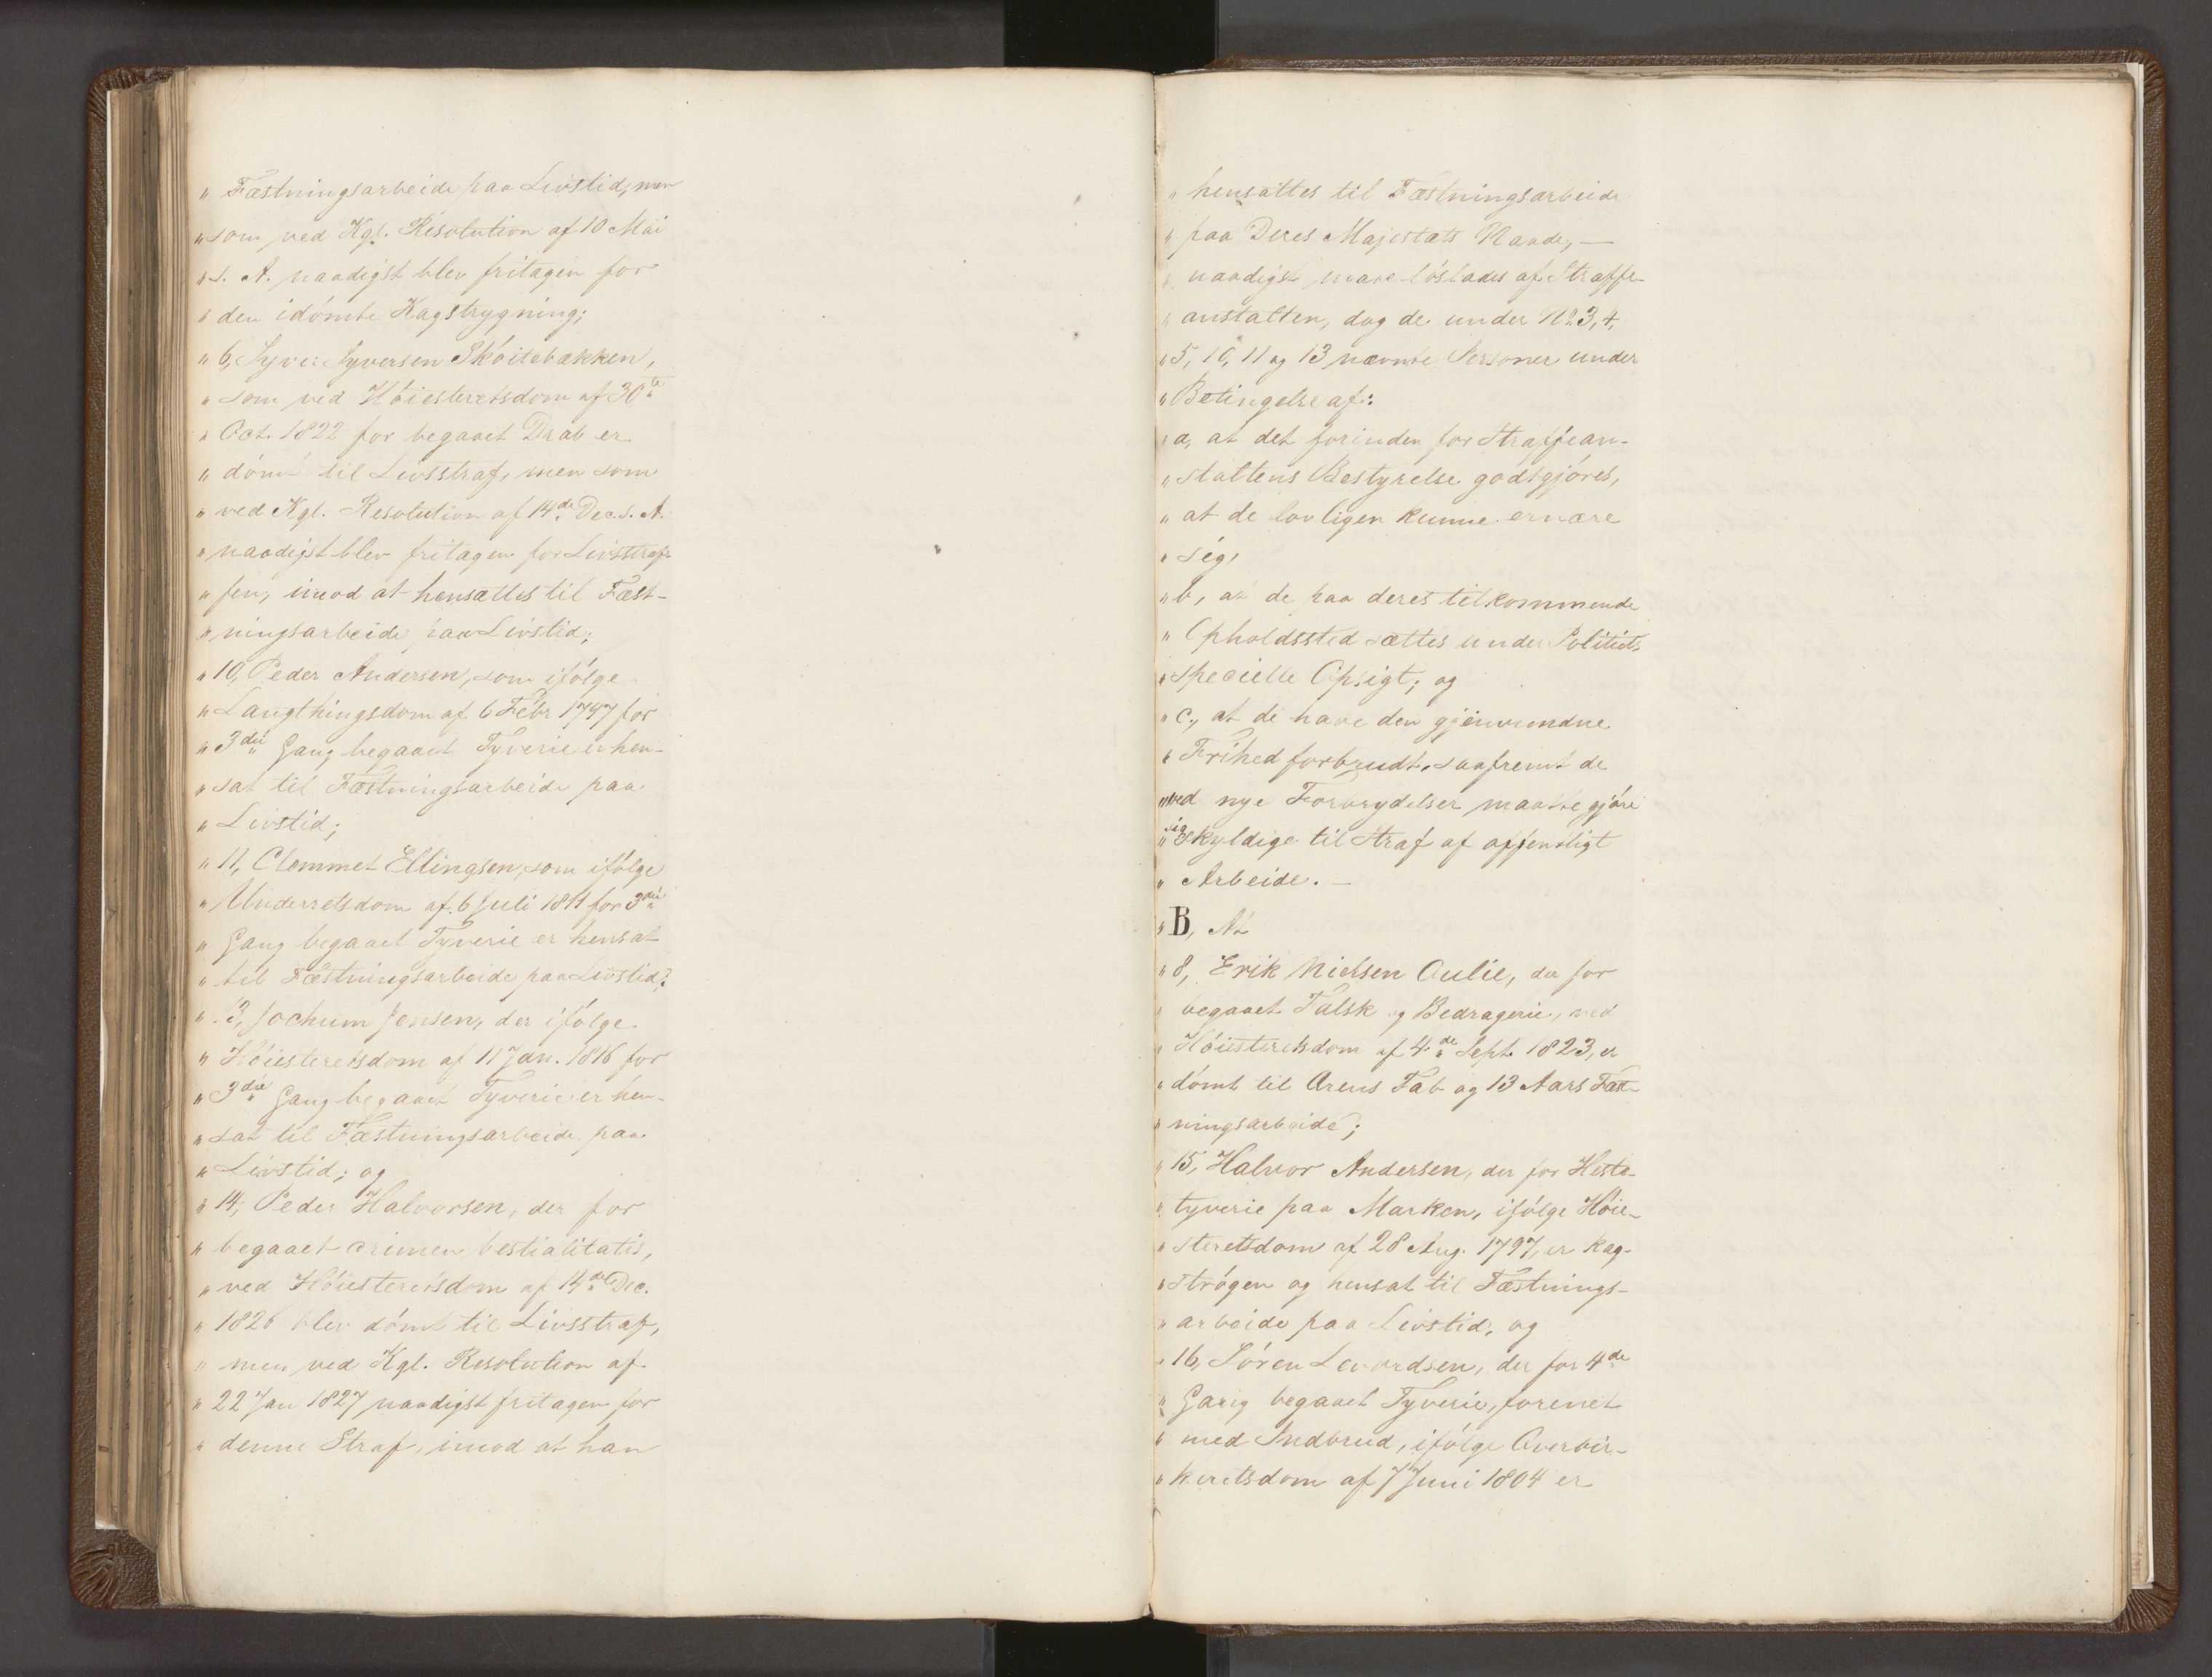 „ Fæstningsarbeide paa Livstid, men
„ som ved Kgl. Resolution af 10 Mai
„ s. A. naadigst blev fritagen for
„ den idömte Kagstrygning;
„ 6, Syver Syversen Sköitebækken,
„ som ved Höiesteretsdom af 30te
„ Oct. 1822 for begaaet Drab er
„ dömt til Livsstraf, men som
„ ved Kgl. Resolution af 14de Dec. s. A.
„ naadigst blev fritagen for Livsstraf-
„ fen, imod at hensættes til Fæst-
„ ningsarbeide paa Livstid;
„ 10, Peder Andersen, som ifölge
„ Laugthingsdom af 6 Febr 1797 for
„ 3die Gang begaaet Tyverie er hen-
„ sat til Fæstningsarbeide paa
„ Livstid;
„ 11, Clemmet Ellingsen, som ifölge
„ Underretsdom af 6 Juli 1811 for 3die
„ Gang begaaet Tyverie er hensat
„ til Fæstningsarbeide paa Livstid;
„ 13, Jochum Jensen, der ifölge
„ Höiesteretsdom af 11 Jan. 1816 for
„ 3die Gang begaaet Tyverie er hen-
„ sat til Fæstningsarbeide paa
„ Livstid; og
„ 14, Peder Halvorsen, der for
„ begaaet crimen bestialitatis,
„ ved Höiesteretsdom af 14de Dec.
„ 1826 blev dömt til Livsstraf,
„ men ved Kgl. Resolution af
„ 22 Jan 1827 naadigst fritagen for
„ denne Straf, imod at han
„ hensattes til Fæstningsarbeide
„ paa Deres Majestæts Naade, —
„ naadigst maae löslades af Straffe-
„ anstalten, dog de under No. 3, 4,
„ 5, 10, 11 og 13 nævnte Personer under
„ Betingelse af:
„ a, at det forinden for Straffean-
„ staltens Bestyrelse godtgjöres,
„ at de lovligen kunne ernære
„ sig,
„ b, at de paa deres tilkommende
„ Opholdssted sættes under Politiets
„ specielle Opsigt; og
„ c, at de have den gjenvundne
„ Frihed forbrudt, saafremt de
„ ved nye Forbrydelser maatte gjöre
„ sig skyldige til Straf af offentligt
„ Arbeide. —
„ B, No
„ 8, Erik Nielsen Aulie, der for
„ begaaet Falsk og Bedragerie, ved
„ Höiesteretsdom af 4de Sept. 1823, er
„ dömt til Ærens Tab og 13 Aars Fæst-
„ ningsarbeide;
„ 15, Halvor Andersen, der for Heste-
„ tyverie paa Marken, ifölge Höie-
„ steretsdom af 28 Aug. 1797, er kag-
„ strögen og hensat til Fæstnings-
„ arbeide paa Livstid, og
„ 16, Sören Levordsen, der for 4de
„ Gang begaaet Tyverie, forenet
„ med Indbrud, ifölge Overbir-
„ keretsdom af 7 Juni 1804 er